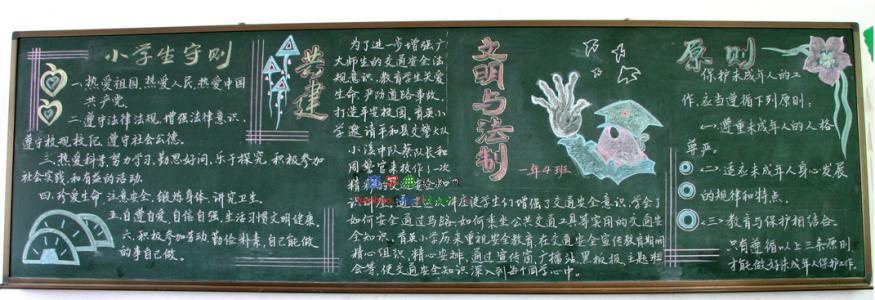 小学生守则
一、热爱祖国,热爱人民,热爱中国
共产党。
二、遵守法律法规,增强法律意识.
遵守校规校纪,遵守社会公德。
三、热爱科学,努力学习,勤思好问,乐于探究,积极参加
社会实践和有益的活动.
四、珍爱生命,注意安全,锻炼身体,讲究卫生。
五、自尊自爱,自信自强,生活习惯文明健康。
六、积极参加劳动,勤俭朴素,自己能做
的事自己做。
共建
为了进一步增强广
大师生的交通安全法
规意识,教育学生关爱
生命,严防道路事故,
打造平安校园,育英小
学邀请平和县交警大队
小溪中队蔡队长和
周警官来校作了一次
精彩
讲座使学生们增强了交通安全意识,学会了
如何安全通过马路,如何乘坐公共交通工具等实用的交通安
全知识。育英小学历来重视安全教育,在交通安全宣传教育期间
精心组织,精心安排,通过宣传窗,广播站,黑板报,主题班
会等,使交通安全知识深入到每个同学心中。
文明与法制
一年4班
原则
保护未成年人的工
作,应当遵循下列原则:
<一>尊重未成年人的人格
尊严。
<二>适应未成年人身心发展
的规律和特点.
<三>教育与保护相结合。
只有遵循以上三条原则
才能做好未成年人保护工作.